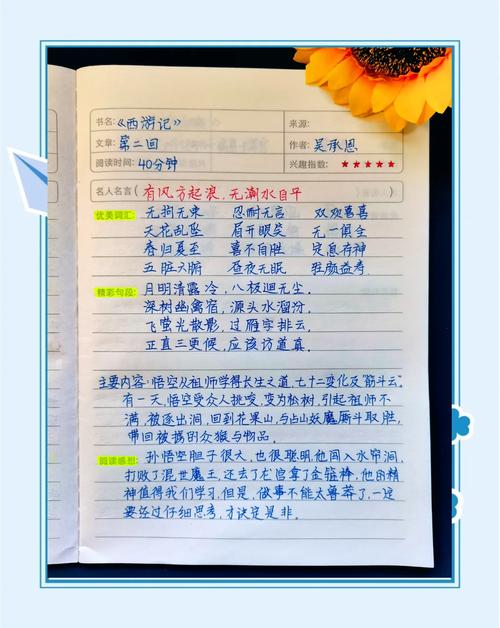 书名:《西游记》 来源:
文章: 第二回 作者: 吴承恩
阅读时间: 40分钟 兴趣指数: ★★★★★
名人名言(有风方起浪,无潮水自平
优美词汇: 无拘无束 忍耐无言 欢欢喜喜
天花乱坠 眉开眼笑 无一俱全
春归夏至 喜不自胜 定息存神
五脏六腑 昼夜无眠 驻颜益寿
精彩句段: 月明清露冷,八极迥无尘。
深树幽禽宿,源头水溜汾。
飞萤光散影,过雁字排云。
正直三更候,应该访道真。
主要内容:悟空从祖师学得长生之道,七十二变化及“筋斗云”。
有一天,悟空受众人挑唆,变为松树,引起祖师不
满,被逐出洞,回到花果山,与占山妖魔厮斗取胜,
带回被掳的众猴与物品。
阅读感想: 孙悟空胆子很大,也很聪明,他闯入水帘洞,
打败了混世魔王,还去了龙宫拿了金箍棒,他的精
神值得我们学习,但是,做事不能太鲁莽了,一定
要经过仔细思考,才决定是非。